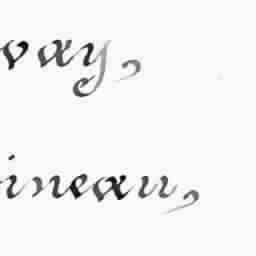 vay,
ineau,